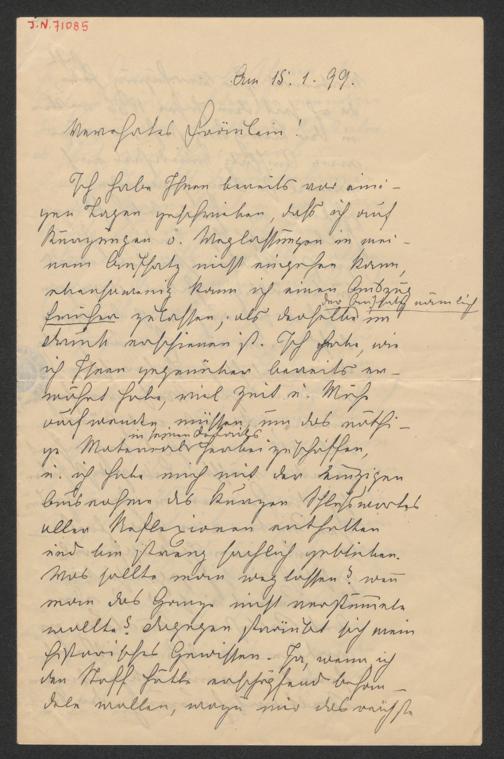 J.N. 71085
Am 15. 1. 99.
Verehrtes Fräulein!
Ich habe Ihnen bereits vor eini-
gen Tagen geschrieben, daß ich auf
Kürzungen o. Weglassungen in mei-
nem Aufsatz nicht eingehen kann,
ebensowenig kann ich einen Auszug
der Aufsatz nämlich
früher zulassen, als derselbe im
Druck erschienen ist. Ich habe, wie
ich Ihnen gegenüber bereits er-
wähnt habe, viel Zeit u. Mühe
aufwenden müssen, um das nöthi-
in seinen Details
ge Material herbeizuschaffen,
u. ich habe mich mit der einzigen
Ausnahme des kurzen Schlußwortes
aller Reflexionen enthalten
und bin streng sachlich geblieben.
Was sollte man weglassen? wenn
man das Ganze nicht verstümmeln
wollte? dagegen sträubt sich mein
historisches Gewissen. Ja, wenn ich
den Stoff hätte erschöpfend behan-
deln wollen, wozu mir das reichste